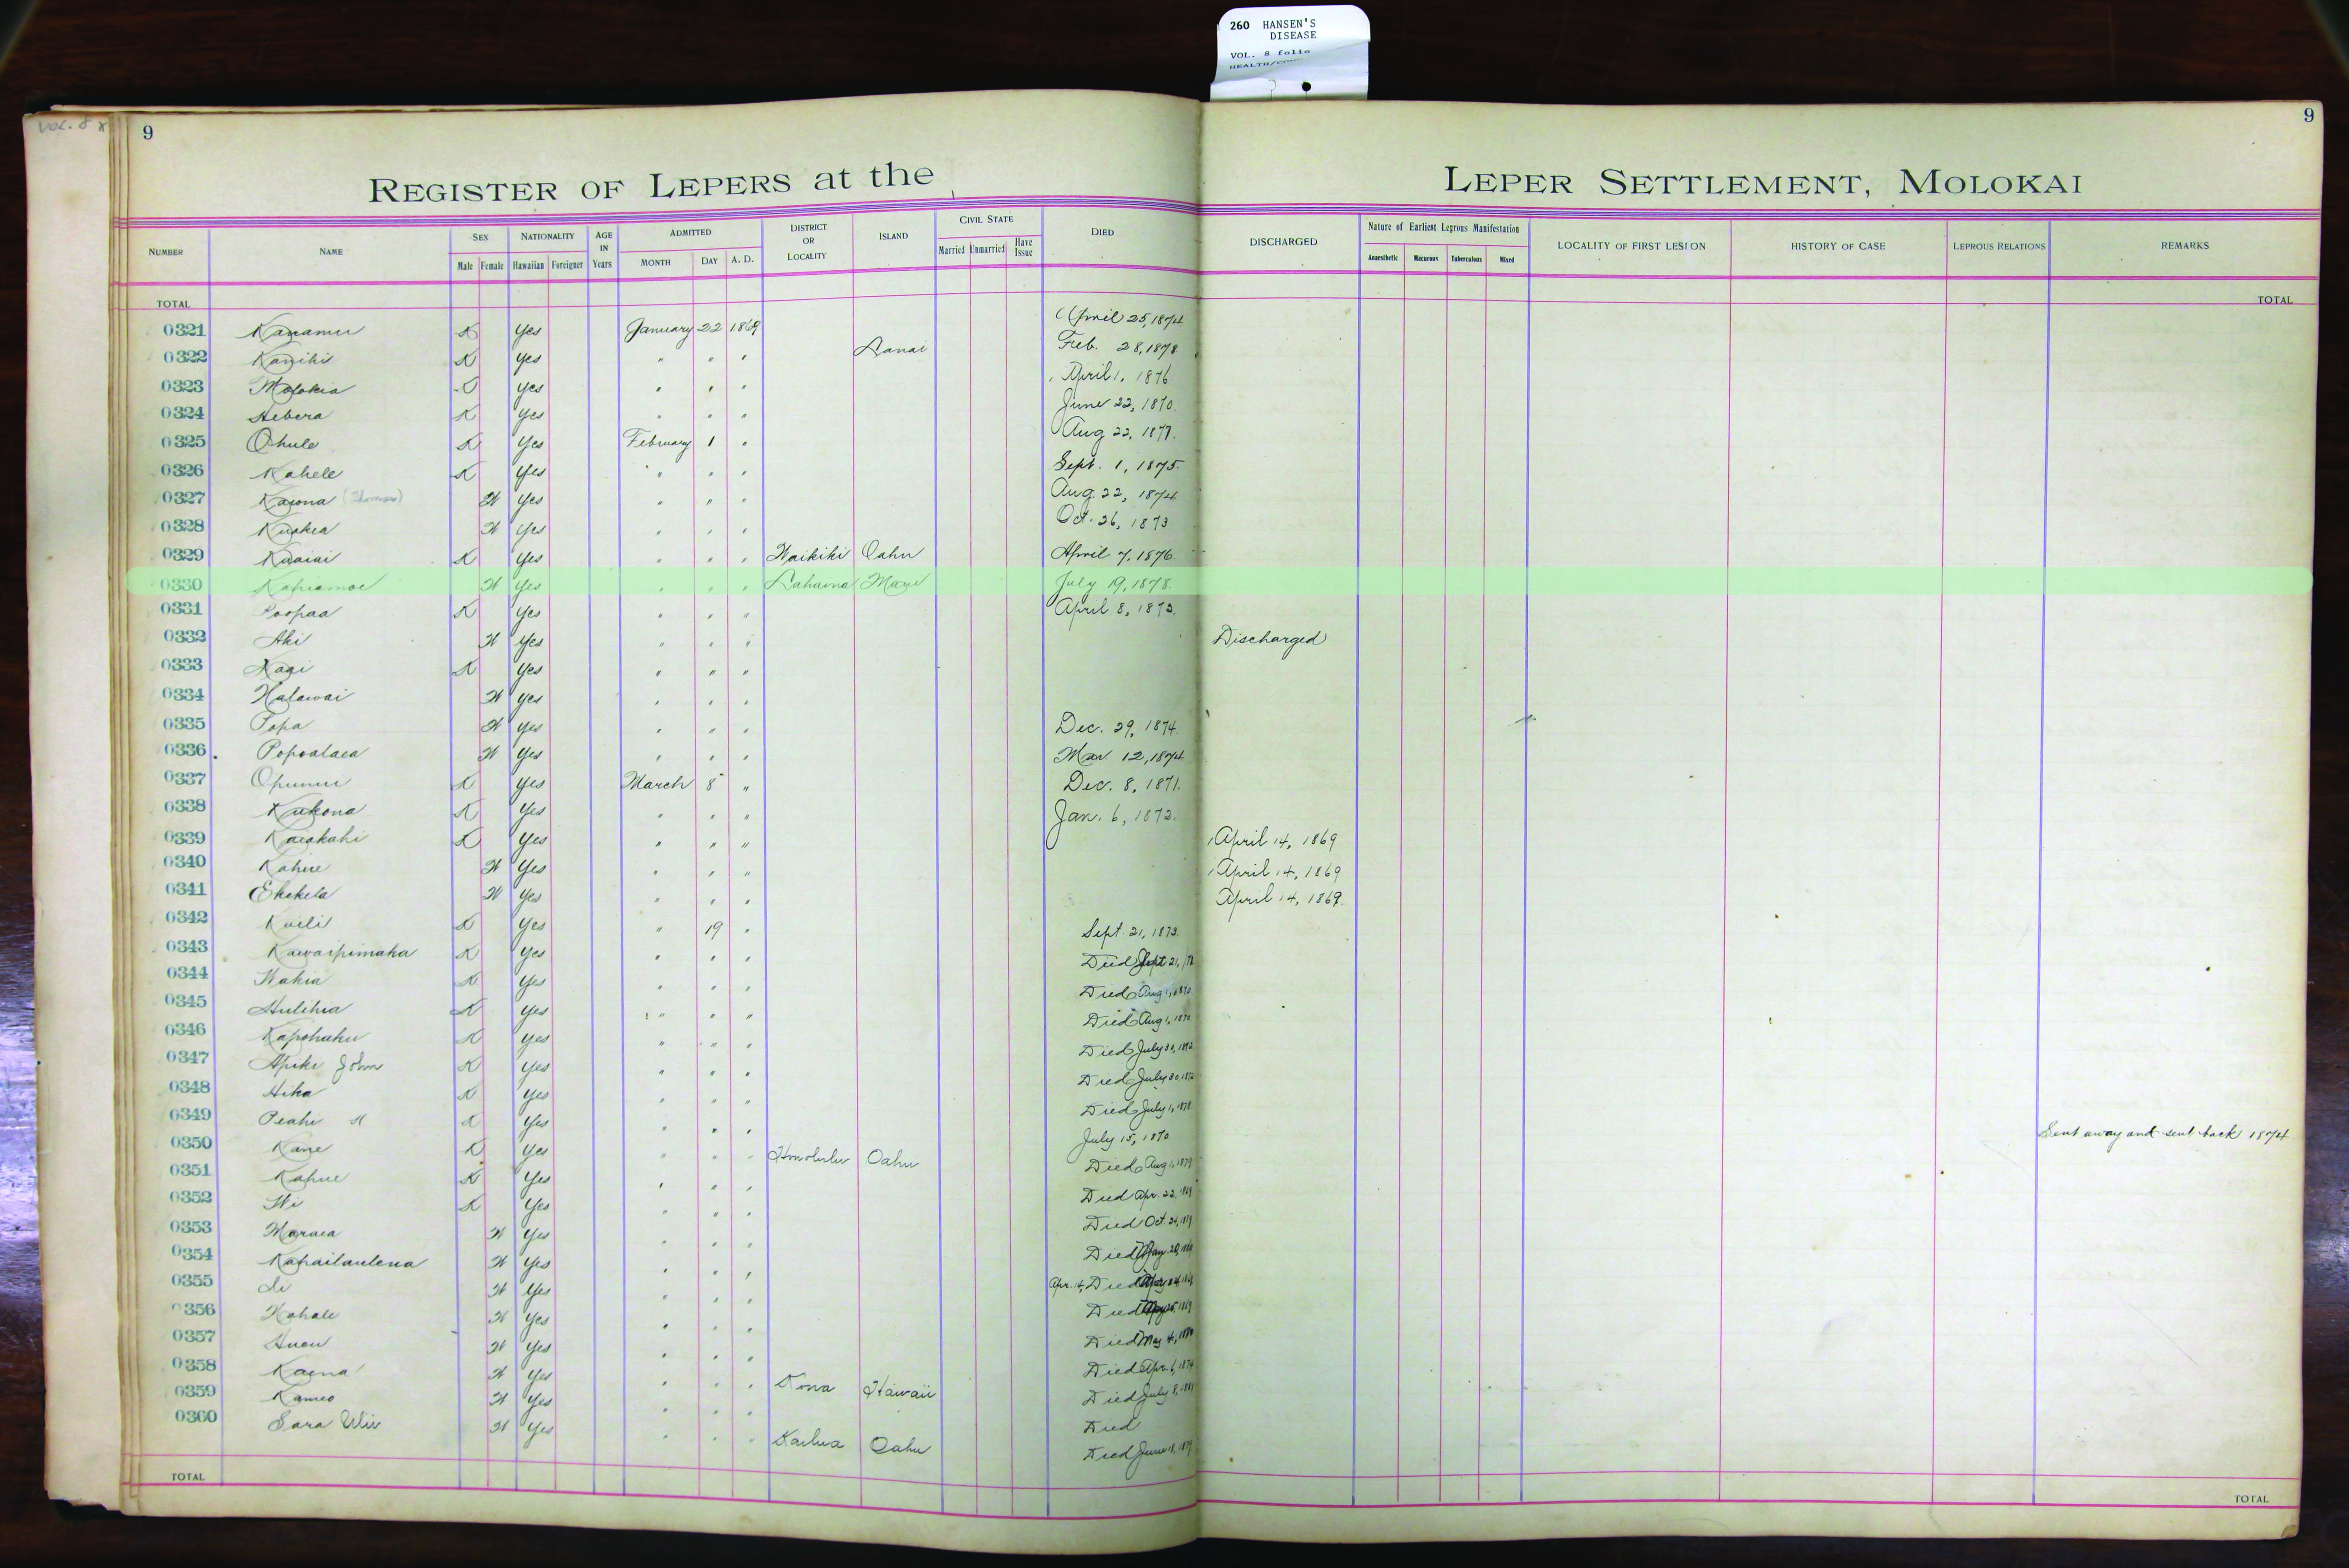 260 HANSEN'S
DISEASE
VOL. 8 folio
VOL. 8
9
9
REGISTER OF LEPERS at the LEPER SETTLEMENT, MOLOKAI
NUMBER NAME SEX Male Female NATIONALITY Hawaiian Foreigner AGE IN Years ADMITTED MONTH DAY A. D. DISTRICT OR LOCALITY ISLAND CIVIL STATE Married Unmarried Have Issue DIED DISCHARGED Nature of Earliest Leprous Manifestation Anaesthetic Macurous Tuberculous Mixed LOCALITY OF FIRST LESION HISTORY OF CASE LEPROUS RELATIONS REMARKS
TOTAL TOTAL
0321 Kanamu K Yes January 22 1869 April 25, 1874
0322 Kanihi K Yes " " " Lanai Feb. 28, 1878
0323 Molokia Yes " " " April 1, 1876
0324 Hebera K Yes " " " June 22, 1870
0325 Ohule K Yes February 1 " Aug 22, 1877.
0326 Kahele K Yes " " " Sept. 1, 1875
0327 Kaiona (Thomas) W Yes " " " Aug. 22, 1874
0328 W Yes " " " Oct. 26, 1873
0329 Kuaiai K Yes " " " Waikiki Oahu April 7, 1876
0330 Kapiamoe W Yes " " " Lahaina Maui July 19, 1878.
0331 Poopaa K Yes " " " April 8, 1873.
0332 Aki W Yes " " " Discharged
0333 K Yes " " "
0334 Halawai W Yes " " "
0335 Popa W Yes " " " Dec. 29, 1874
0336 Popoalaea W Yes " " " Mar 12, 1874
0337 Opunui K Yes March 8 " Dec. 8, 1871.
0338 Kukona K Yes " " " Jan. 6, 1872.
0339 Kaiakahi K Yes " " " April 14, 1869
0340 Kahue W Yes " " " April 14, 1869
0341 Ekekela W Yes " " " April 14, 1869
0342 Kaili K Yes " 19 " Sept. 21, 1873
0343 Kawaipimaka K Yes " " " Died Sept 21,
0344 Wahia K Yes " " " Died Aug 1, 1870
0345 Hulihia K Yes " " " Died Aug 1, 1870
0346 Kapohaku K Yes " " " Died July 30, 1872
0347 Apiki John K Yes " " " Died July 30, 1872
0348 Hika K Yes " " " Died July 1, 1878
0349 Peahi K Yes " " " July 15, 1870 Sent away and sent back 1874
0350 Kane K Yes " " " Honolulu Oahu Died Aug 1, 1879
0351 Kahue K Yes " " " Died Apr. 22, 1869
0352 K Yes " " " Died Oct.
0353 Maraea W Yes " " " Died
0354 Kahailaulena W Yes " " " Apr. 14, Died
0355 W Yes " " " Died
0356 Kahale W Yes " " " Died May 4,
0357 W Yes " " " Died Apr. 6, 1874
0358 Kaena W Yes " " " Kona Hawaii Died July 8, 1881
0359 Kameo W Yes " " " Died
0360 Sara W Yes " " " Kailua Oahu Died June
TOTAL TOTAL